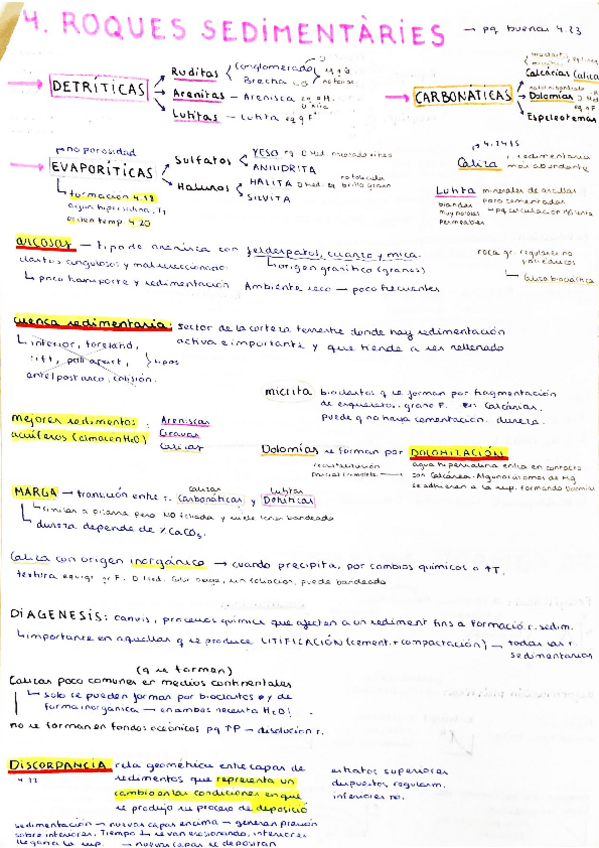 4. ROQUES SEDIMENTÀRIES → pg buenas 4.23
DETRÍTICAS
Ruditas
Conglomerado
Brecha
Arenitas → Arenisca
Lutitas → Lutita
CARBONÁTICAS
Calcárias
Dolomías
Espeleotemas
no porosidad
EVAPORÍTICAS
Sulfatos
YESO
ANHIDRITA
Haluros
HALITA
SILVITA
formación 4.18
4.20
Caliza: r. sedimentaria
más abundante
Lutita minerales de arcillas
poco cementadas
blandas
permeables
arcosas — tipo de arenisca con feldespatos, cuarzo y mica.
clastos angulosos y mal seleccionados
origen granítico (granos)
poco transporte y sedimentación Ambiente seco — poco frecuentes
cuenca sedimentaria: sector de la corteza terrestre donde hay sedimentación
activa e importante y que tiende a ser rellenado
interior, foreland,
rift, pull apart, tipos
antel post arco, colisión.
micrita bioclastos q se forman por fragmentación
de esqueletos. grano F. en calcárias.
puede q no haya cementación. dureza.
mejores sedimentos:
acuíferos (almacen H₂O)
Areniscas
Gravas
Calizas
Dolomías se forman por DOLOMITACIÓN
agua hipersalina entra en contacto
con calcárea. Algunos átomos de Mg
se adhieren a la sup. formando Dolomías
MARGA → transición entre r. Carbonáticas y Detríticas
calizas
lutitas
similar a pizarra pero NO foliada y suele tener bandeado
dureza depende de % CaCO₃.
Caliza con origen inorgánico → cuando precipita, por cambios químicos o ↑T.
textura equigr. gr F. D Med. Color beige, sin foliación, puede bandeado
DIAGENESIS: canvis, procesos químics que afecten a un sediment fins a formació r. sedim.
importante en aquellas q se produce LITIFICACIÓN (cement. + compactación) → todas las r.
sedimentarias
(q se forman)
Calizas poco comunes en medios continentales
solo se pueden formar por bioclastos o y de
forma inorgánica → en ambos necesita H₂O!
no se forman en fondos oceánicos pq ↑P — disolución r.
DISCORPANCIA rela geométrica entre capas de
4.22
sedimentos que representa un
cambio en las condiciones en que
se produjo su proceso de deposició
estratos superiores
dispuestos regularm.
inferiores no.
sedimentación → nuevas capas encima → generan presión
sobre inferiores. Tiempo se van erosionando, inferiores
llegan a la sup. → nuevas capas se depositan